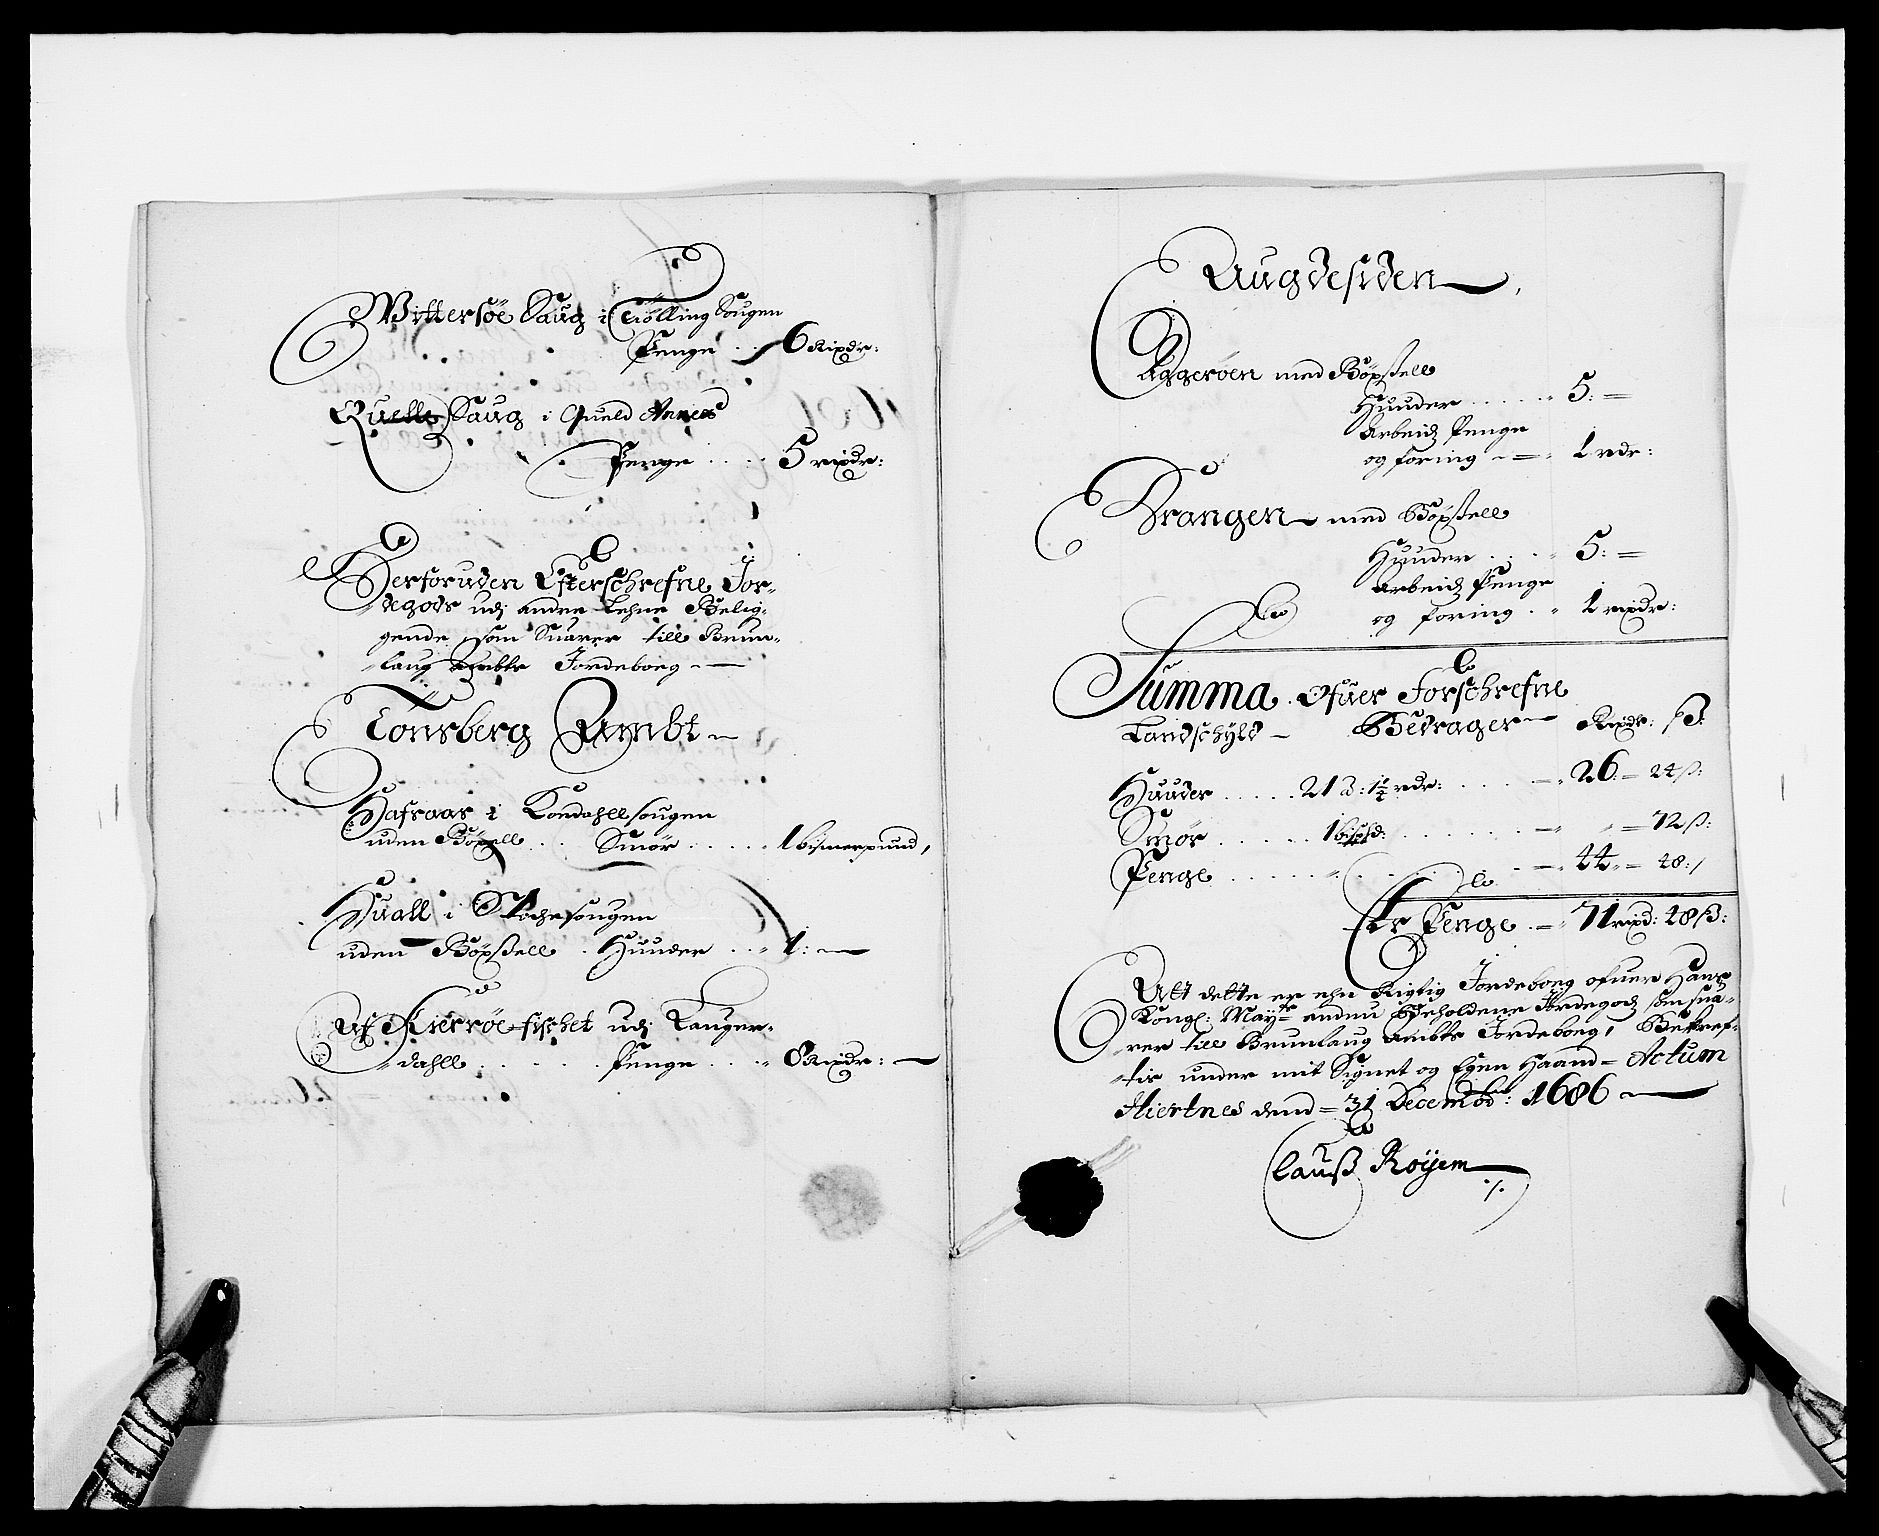 Wittersøe Saug i Tiølling Sougen
Penge . . 6 Rixdr:
Quelle Saug i Queld Annex
Penge . . . . 5 rixdr:
Derforuden Efterschrefne Jor-
degods udj andre Lehne Belig-
gende som Suarer till Brun-
laug Ambts Jordeboeg —
Tønsberg Ambt —
Hafraas i Rondahll sougen
uden Böxell . . Smör . . . . . 1 bismerpund,
Huall i Stochesougen
uden Böxsell . Huuder . . . 1: —
Af Kierrøe fischet udj Lauger-
dahll . . . . . . Penge . . . . 8 Rixdr: —
Augdesiden,
Aggerøen med Böxsell
Huuder . . . . . . 5: =
Arbeidz Penge
og foring - = . 1 rdr:
Krangen med Böxsell
Huuder . . . . 5: =
Arbeidz Penge
og foring . . 1 rixdr:
Summa Ofuer Forschrefne
Landschyld — Bedrager — Rixdr: ß:
Huuder . . . . . 21 a: 1¼ rdr: . . . . — 26: = 24 ß:
Smör . . . . . . 1 bispd: . . . . . . — = 72 ß:
Penge . . . . . . . . . . . — 44 = 48: /
Er Penge . — 71 rixd: 48 ß:
Att dette er ehn Rigtig Jordeboeg ofuer Hans
Kongl: Maytz endnu Beholdene Jordegodz som sua-
rer till Brunlaug Ambts Jordeboeg, Bekref-
tis under mit Signet og Egen Haand = Actum
Hiertnes dend = 31 Decembr: 1686 —
Clauß Röyem